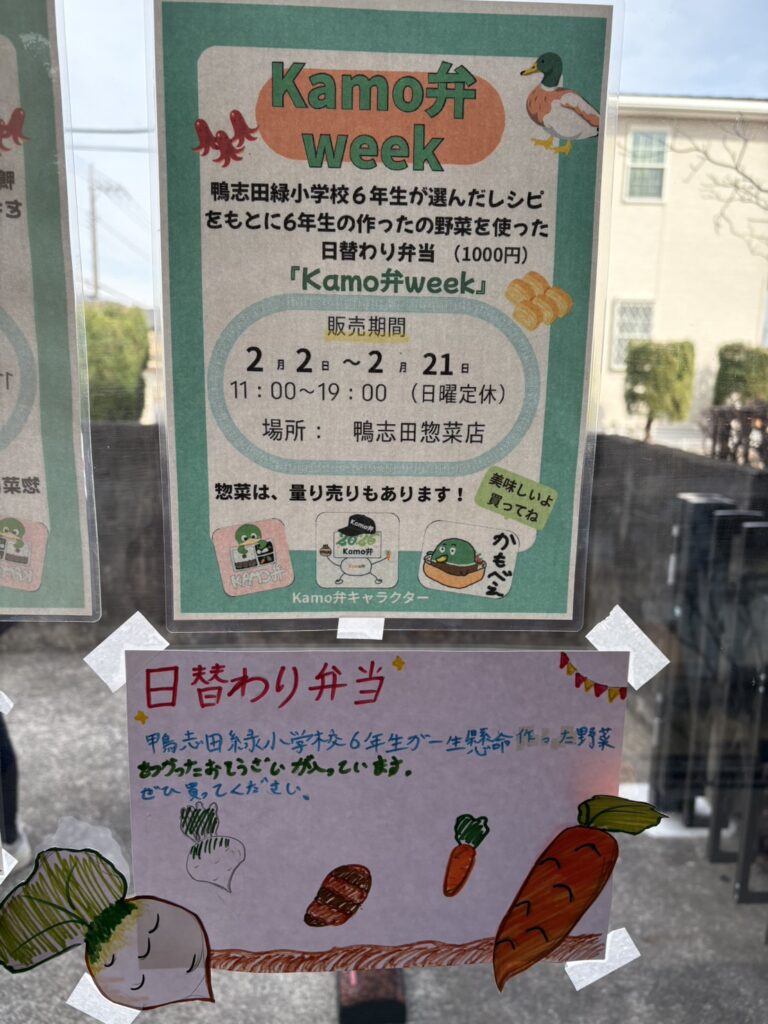 Kamo弁
week
鴨志田緑小学校6年生が選んだレシピ
をもとに6年生の作ったの野菜を使った
日替わり弁当 (1000円)
『Kamo弁week』
販売期間
2月2日〜2月21日
11:00〜19:00 (日曜定休)
場所: 鴨志田惣菜店
惣菜は、量り売りもあります!
美味しいよ
買ってね
KAMO弁
Kamo弁
2026
Kamo弁
かもべえ
Kamo弁キャラクター
日替わり弁当
鴨志田緑小学校6年生が一生懸命作った野菜
をつかったおそうざいが入っています。
ぜひ買ってください。